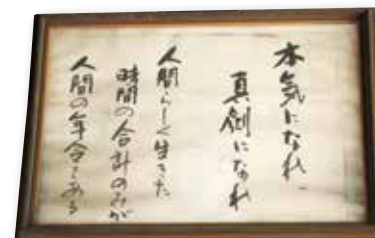 本気になれ
真剣になれ
人間らしく生きた
時間の合計のみが
人間の年令である